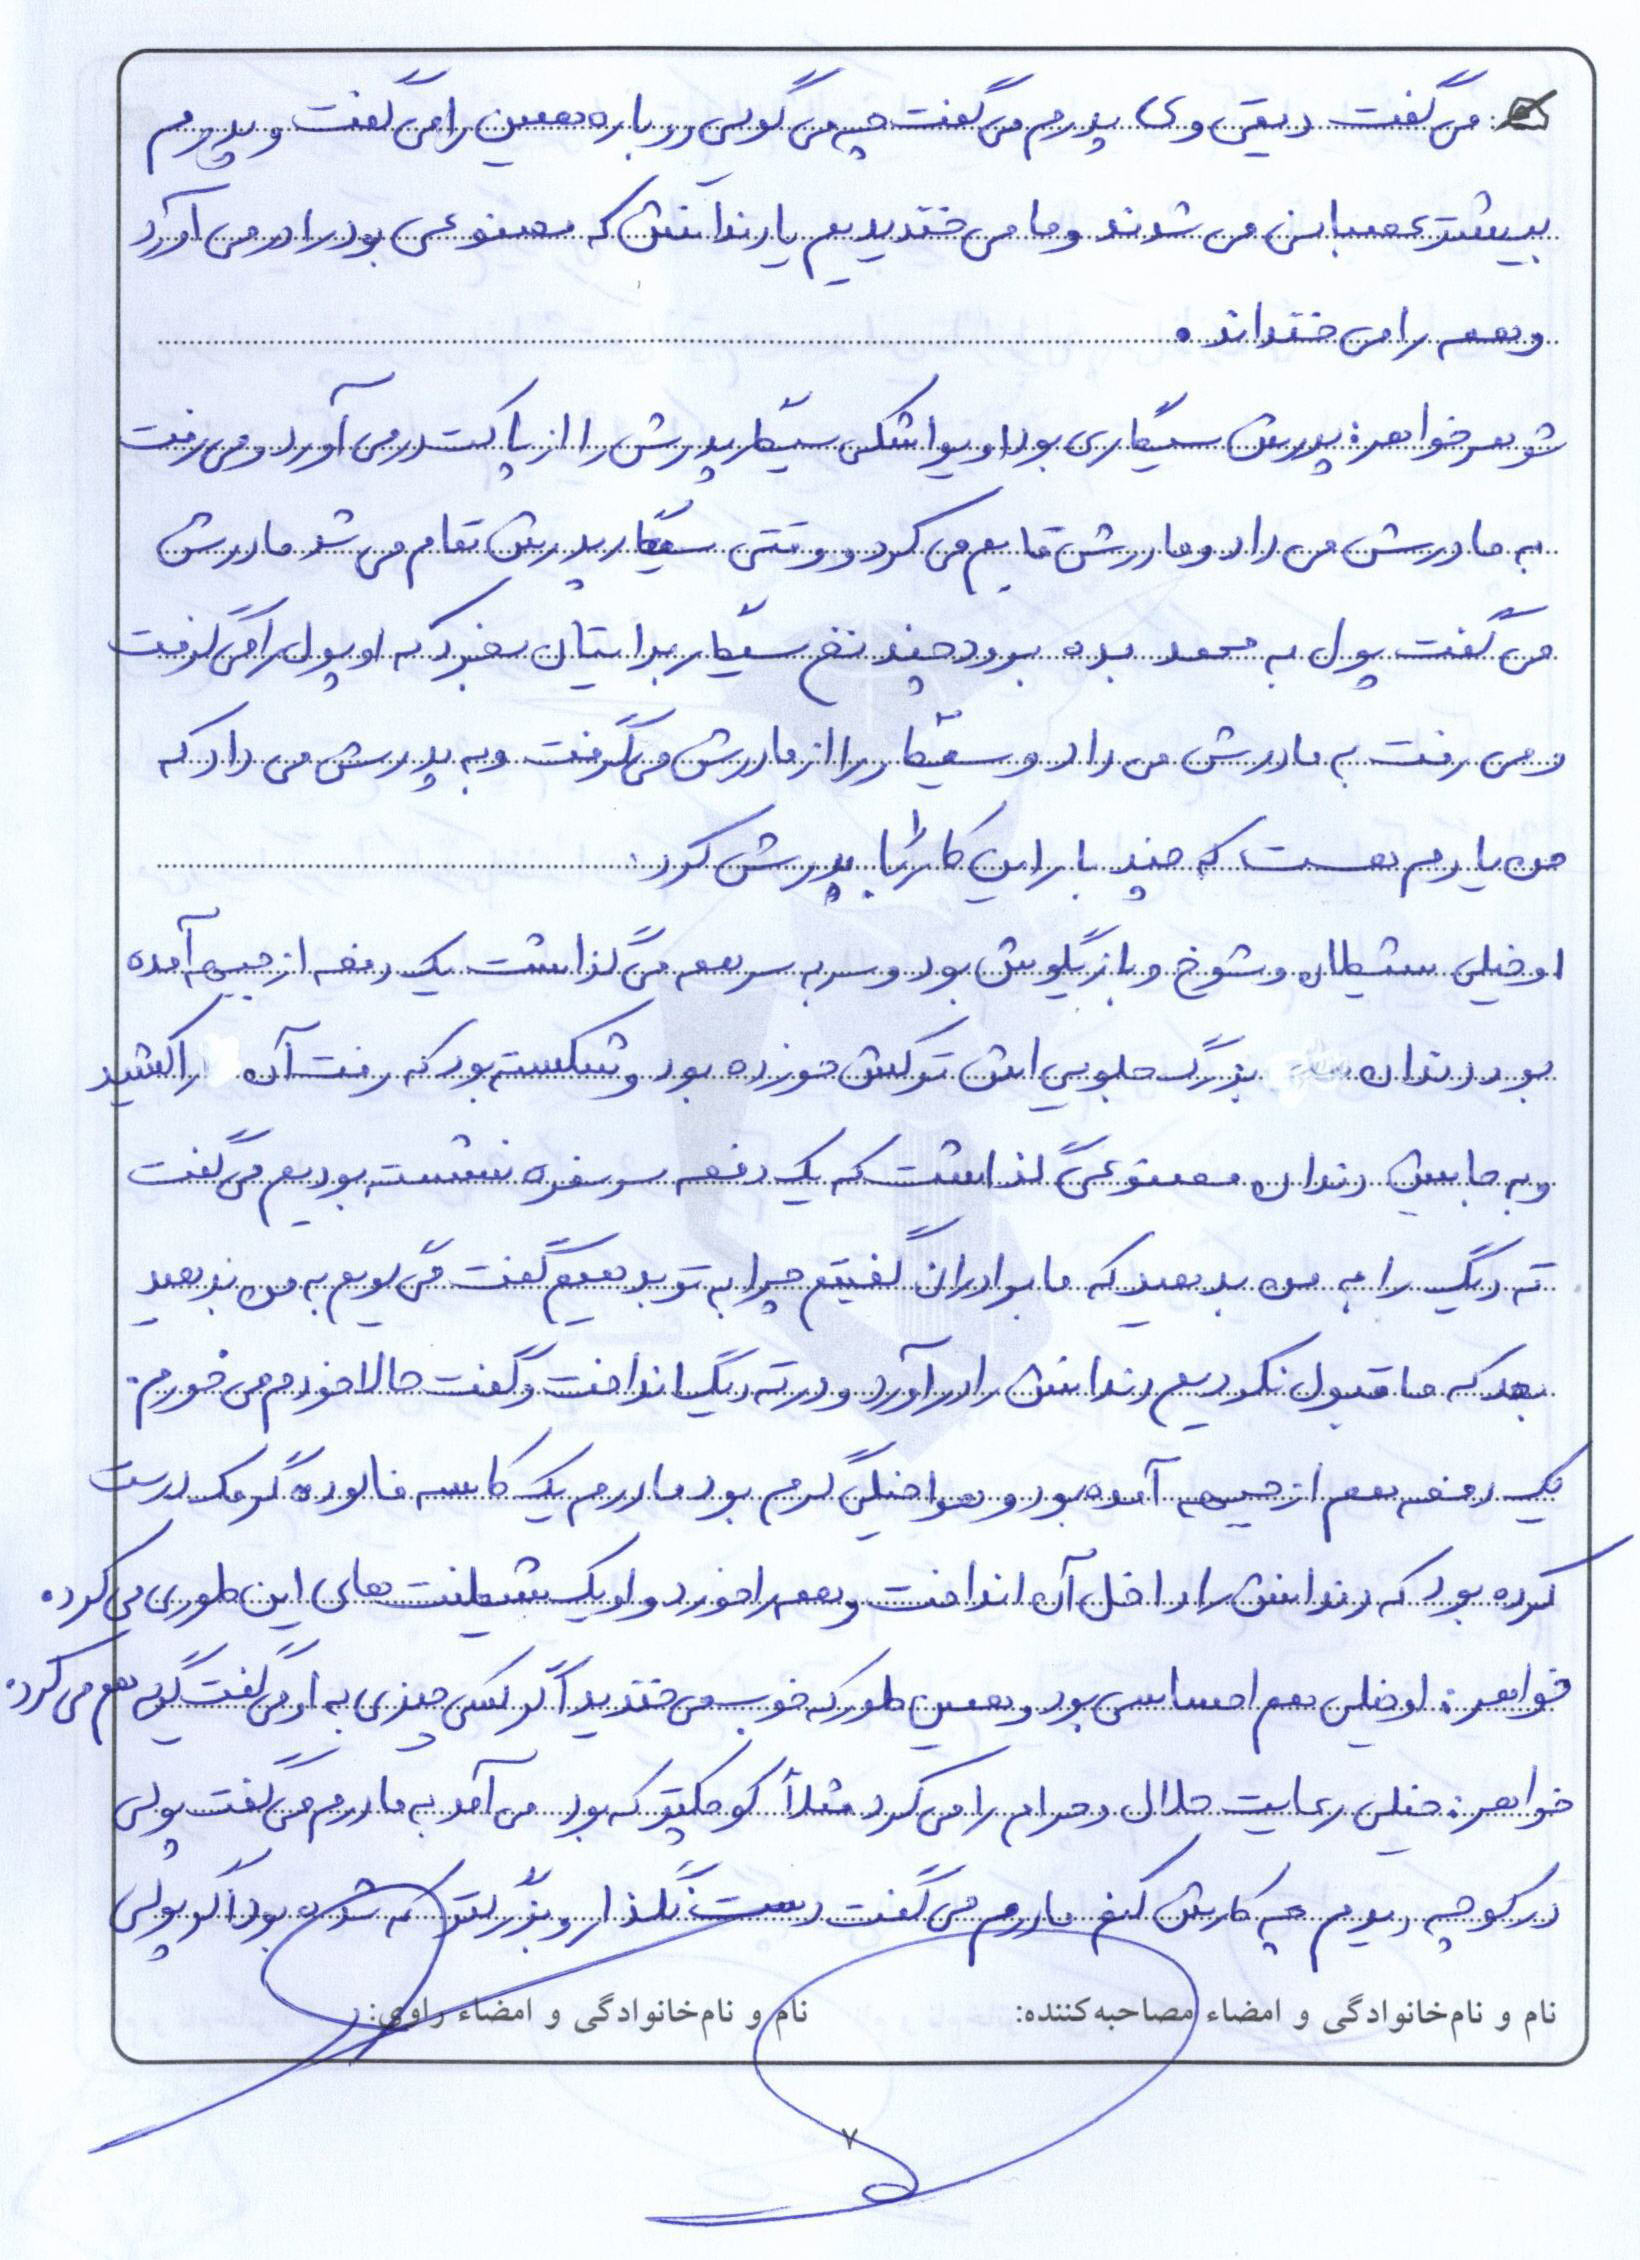 می گفت دیقی وی پدرم می گفت چه می گویی دوباره همین را می گفت و پدرم
بیشتر عصبانی می شدند و ما می خندیدیم یا دندانش که مصنوعی بود را در می آورد
و همه را می خنداند.
شوهر خواهر: پدرش سیگاری بود او یواشکی سیگار پدرش را از پاکت در می آورد و می رفت
به مادرش می داد و مادرش قایم می کرد و وقتی سیگار پدرش تمام می شد مادرش
می گفت پول به محمد بده برود چند نخ سیگار برایتان بخرد که او پول را می گرفت
و می رفت به مادرش می داد و سیگار را از مادرش می گرفت و به پدرش می داد که
من یادم هست که چند بار این کار را با پدرش کرد.
او خیلی شیطان و شوخ و بازیگوش بود و سر به سر همه می گذاشت یک دفعه از جبهه آمده
بود دندان بزرگ جلویی اش ترکش خورده بود و شکسته بود که رفت آن را کشید
و به جایش دندان مصنوعی گذاشت که یک دفعه سر سفره نشسته بودیم می گفت
ته دیگ را به من بدهید که ما برادران گفتیم چرا به تو بدهیم گفت می گویم به من بدهید
بعد که ما قبول نکردیم دندانش را در آورد و در ته دیگ انداخت و گفت حالا خودم می خورم.
یک دفعه هم از جبهه آمده بود و هوا خیلی گرم بود مادرم یک کاسه فالوده گرمک درست
کرده بود که دندانش را داخل آن انداخت و همه را خورد و او یک شیطنت های این طوری می کرد.
خواهر: او خیلی هم احساسی بود و همین طور که خوب می خندید اگر کسی چیزی به او می گفت گریه هم می کرد.
خواهر: خیلی رعایت حلال و حرام را می کرد مثلاً کوچکتر که بود می آمد به مادرم می گفت پولی
در کوچه دیدم چه کارش کنم مادرم می گفت دست نگذار و بزرگتر که شده بود اگر پولی
نام و نام‌خانوادگی و امضاء مصاحبه‌کننده: نام و نام‌خانوادگی و امضاء راوی:
۷